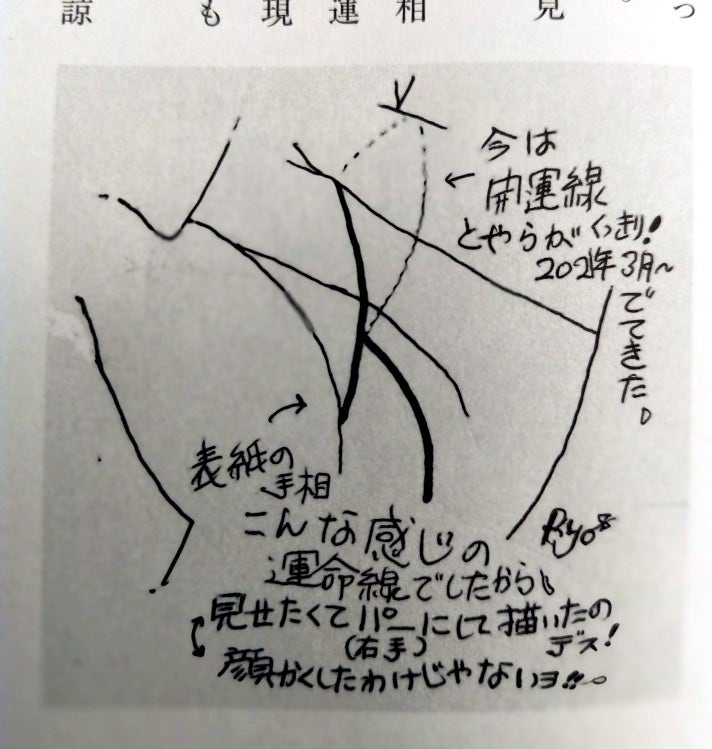 諒 も 現 運 相 見 。 っ
今は
開運線
とやらがくっきり!
2021年3月〜
でてきた。
表紙の
手相
こんな感じの
運命線でしたから
見せたくてパーにして描いたの
(右手)
デス!
顔かくしたわけじゃないヨ!!
Ryo